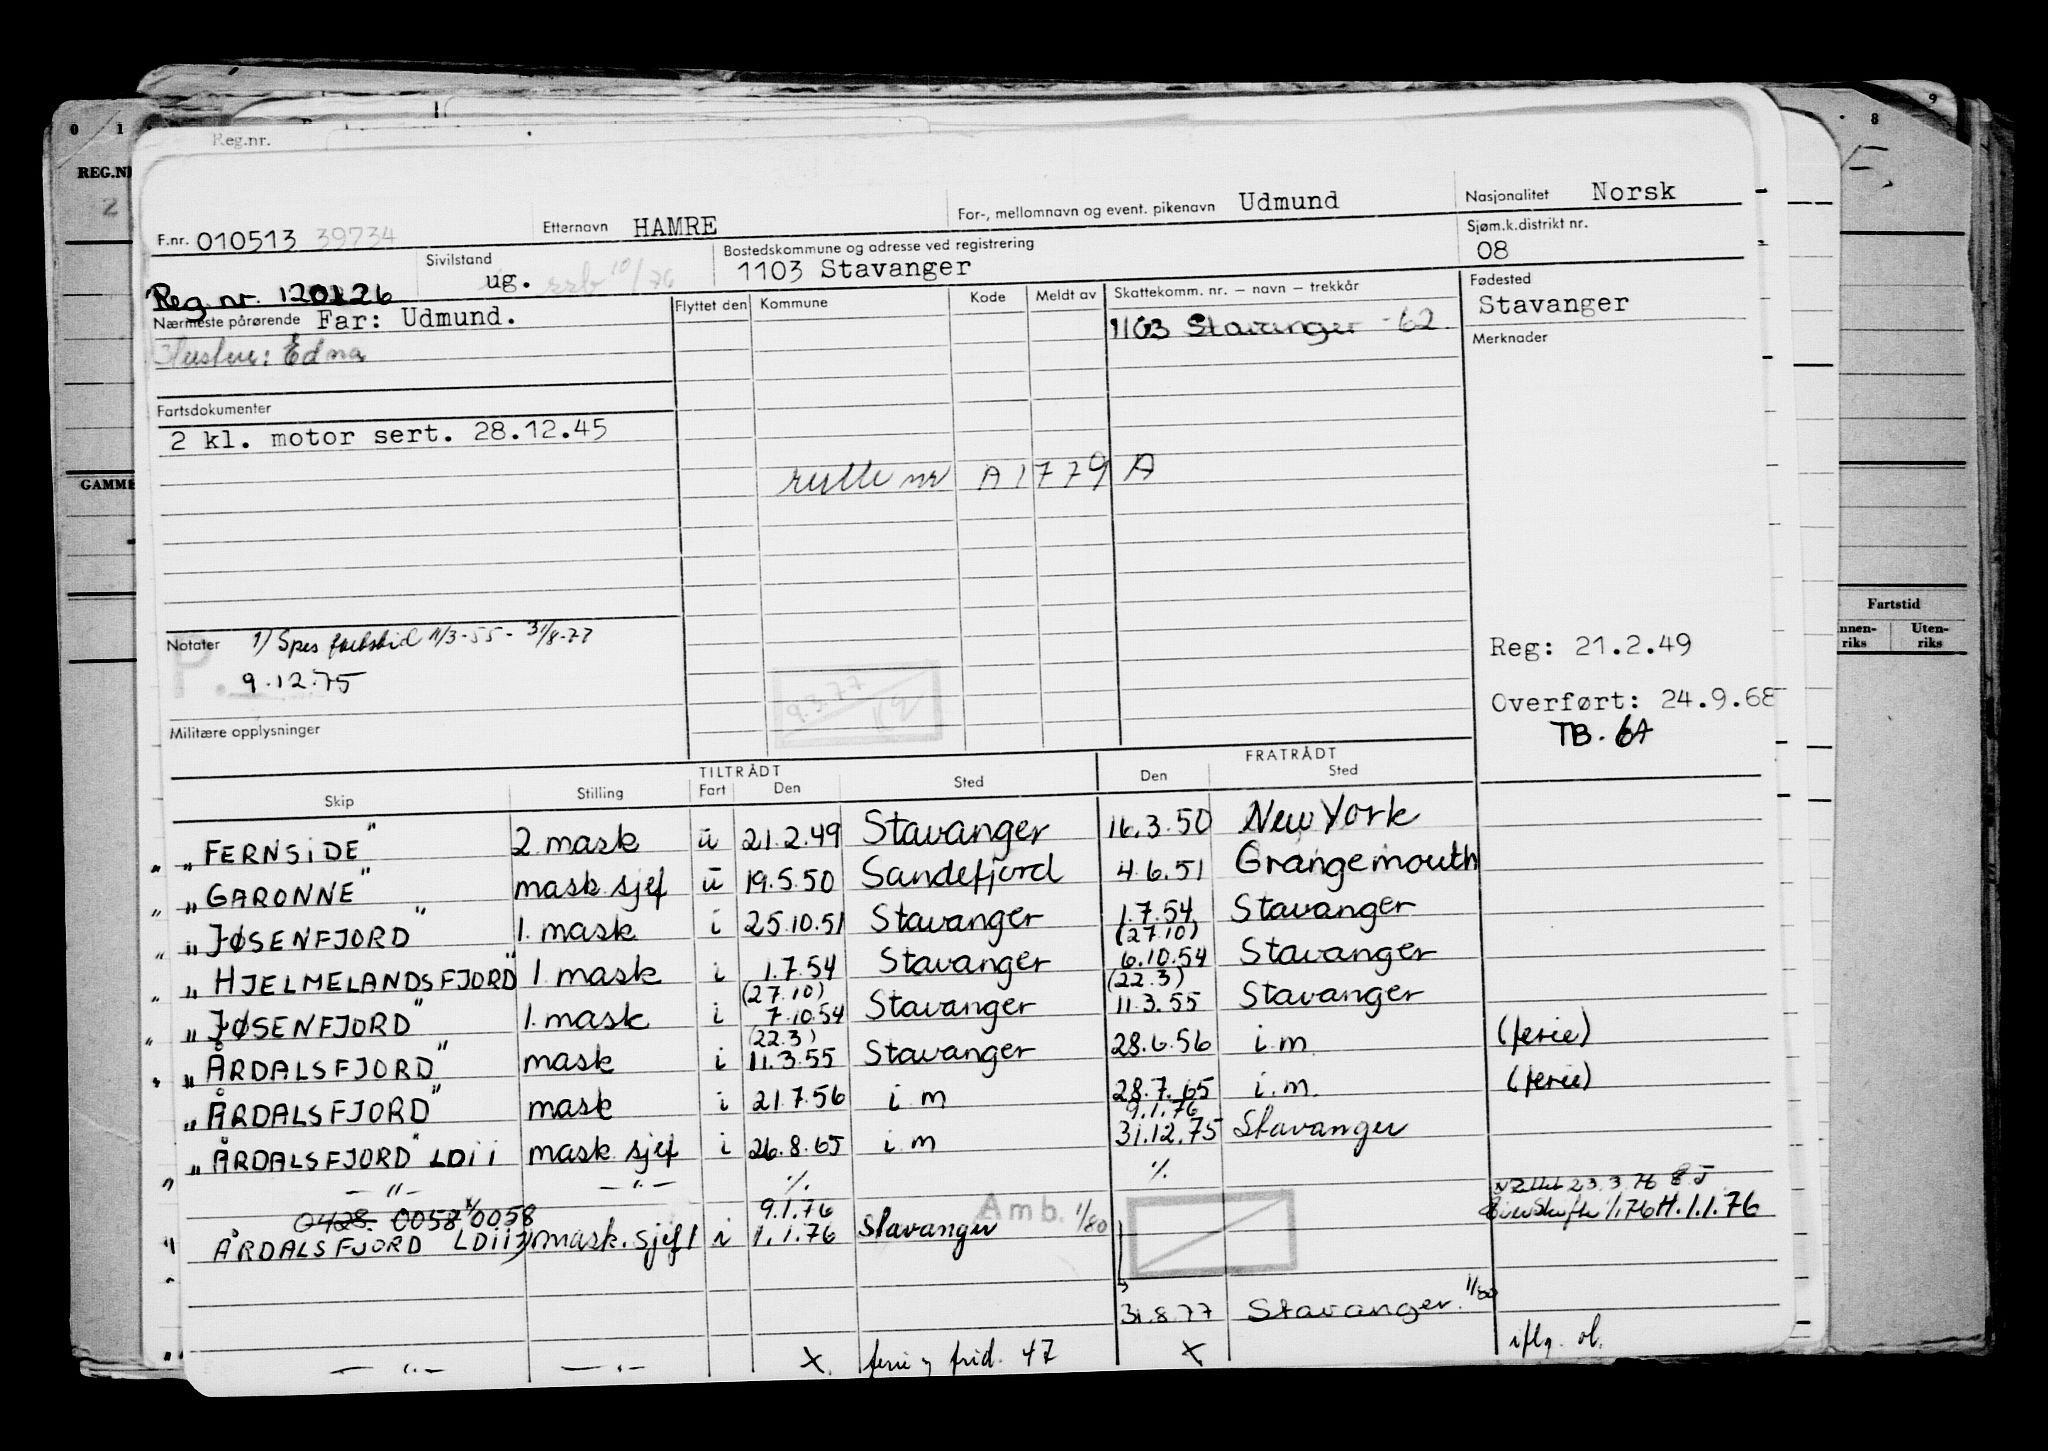 Reg.nr.
0 1
REG.NR
2
GAMME
9
8
Fartstid
Innen-riks Uten-riks
F.nr. 010513 39734 Etternavn HAMRE For-, mellomnavn og event. pikenavn Udmund Nasjonalitet Norsk
Reg. nr. 120126 Sivilstand ug. 10/76 Bostedskommune og adresse ved registrering 1103 Stavanger Sjøm.k.distrikt nr. 08
Nærmeste pårørende Far: Udmund. Flyttet den Kommune Kode Meldt av Skattekomm. nr. – navn – trekkår Fødested Stavanger
Hustru: Edna 1103 Stavanger -62 Merknader
Fartsdokumenter
2 kl. motor sert. 28.12.45
rulle nr A 1779 A
Notater 1) Spes fartstid 11/3-55 - 31/8-77 Reg: 21.2.49
P. 9.12.75 9.3.77
Overført: 24.9.68
Militære opplysninger TB. 6A
TILTRÅDT FRATRÅDT
Skip Stilling Fart Den Sted Den Sted
"FERNSIDE" 2 mask u 21.2.49 Stavanger 16.3.50 New York
"GARONNE" mask sjef u 19.5.50 Sandefjord 4.6.51 Grangemouth
"JØSENFJORD" 1. mask i 25.10.51 Stavanger 1.7.54 (27.10) Stavanger
"HJELMELANDSFJORD" 1. mask i 1.7.54 (27.10) Stavanger 6.10.54 (22.3) Stavanger
"JØSENFJORD" 1. mask i 7.10.54 (22.3) Stavanger 11.3.55 Stavanger
"ÅRDALSFJORD" mask i 11.3.55 Stavanger 28.6.56 i.m (ferie)
"ÅRDALSFJORD" mask i 21.7.56 i.m 28.7.65 i.m. (ferie)
"ÅRDALSFJORD" LDII mask sjef i 26.8.65 i.m 9.1.76 31.12.75 Stavanger
— " — — " — % %
0428. 0058 0058 9.1.76 Amb. 1/80 23.3.76
ÅRDALSFJORD LDII mask. sjef 1 i 1.1.76 Stavanger 1/76 H.1.1.76
31.8.77 Stavanger. 1/80
— " — — " — X ferie og frid. 47 X iflg. ol.